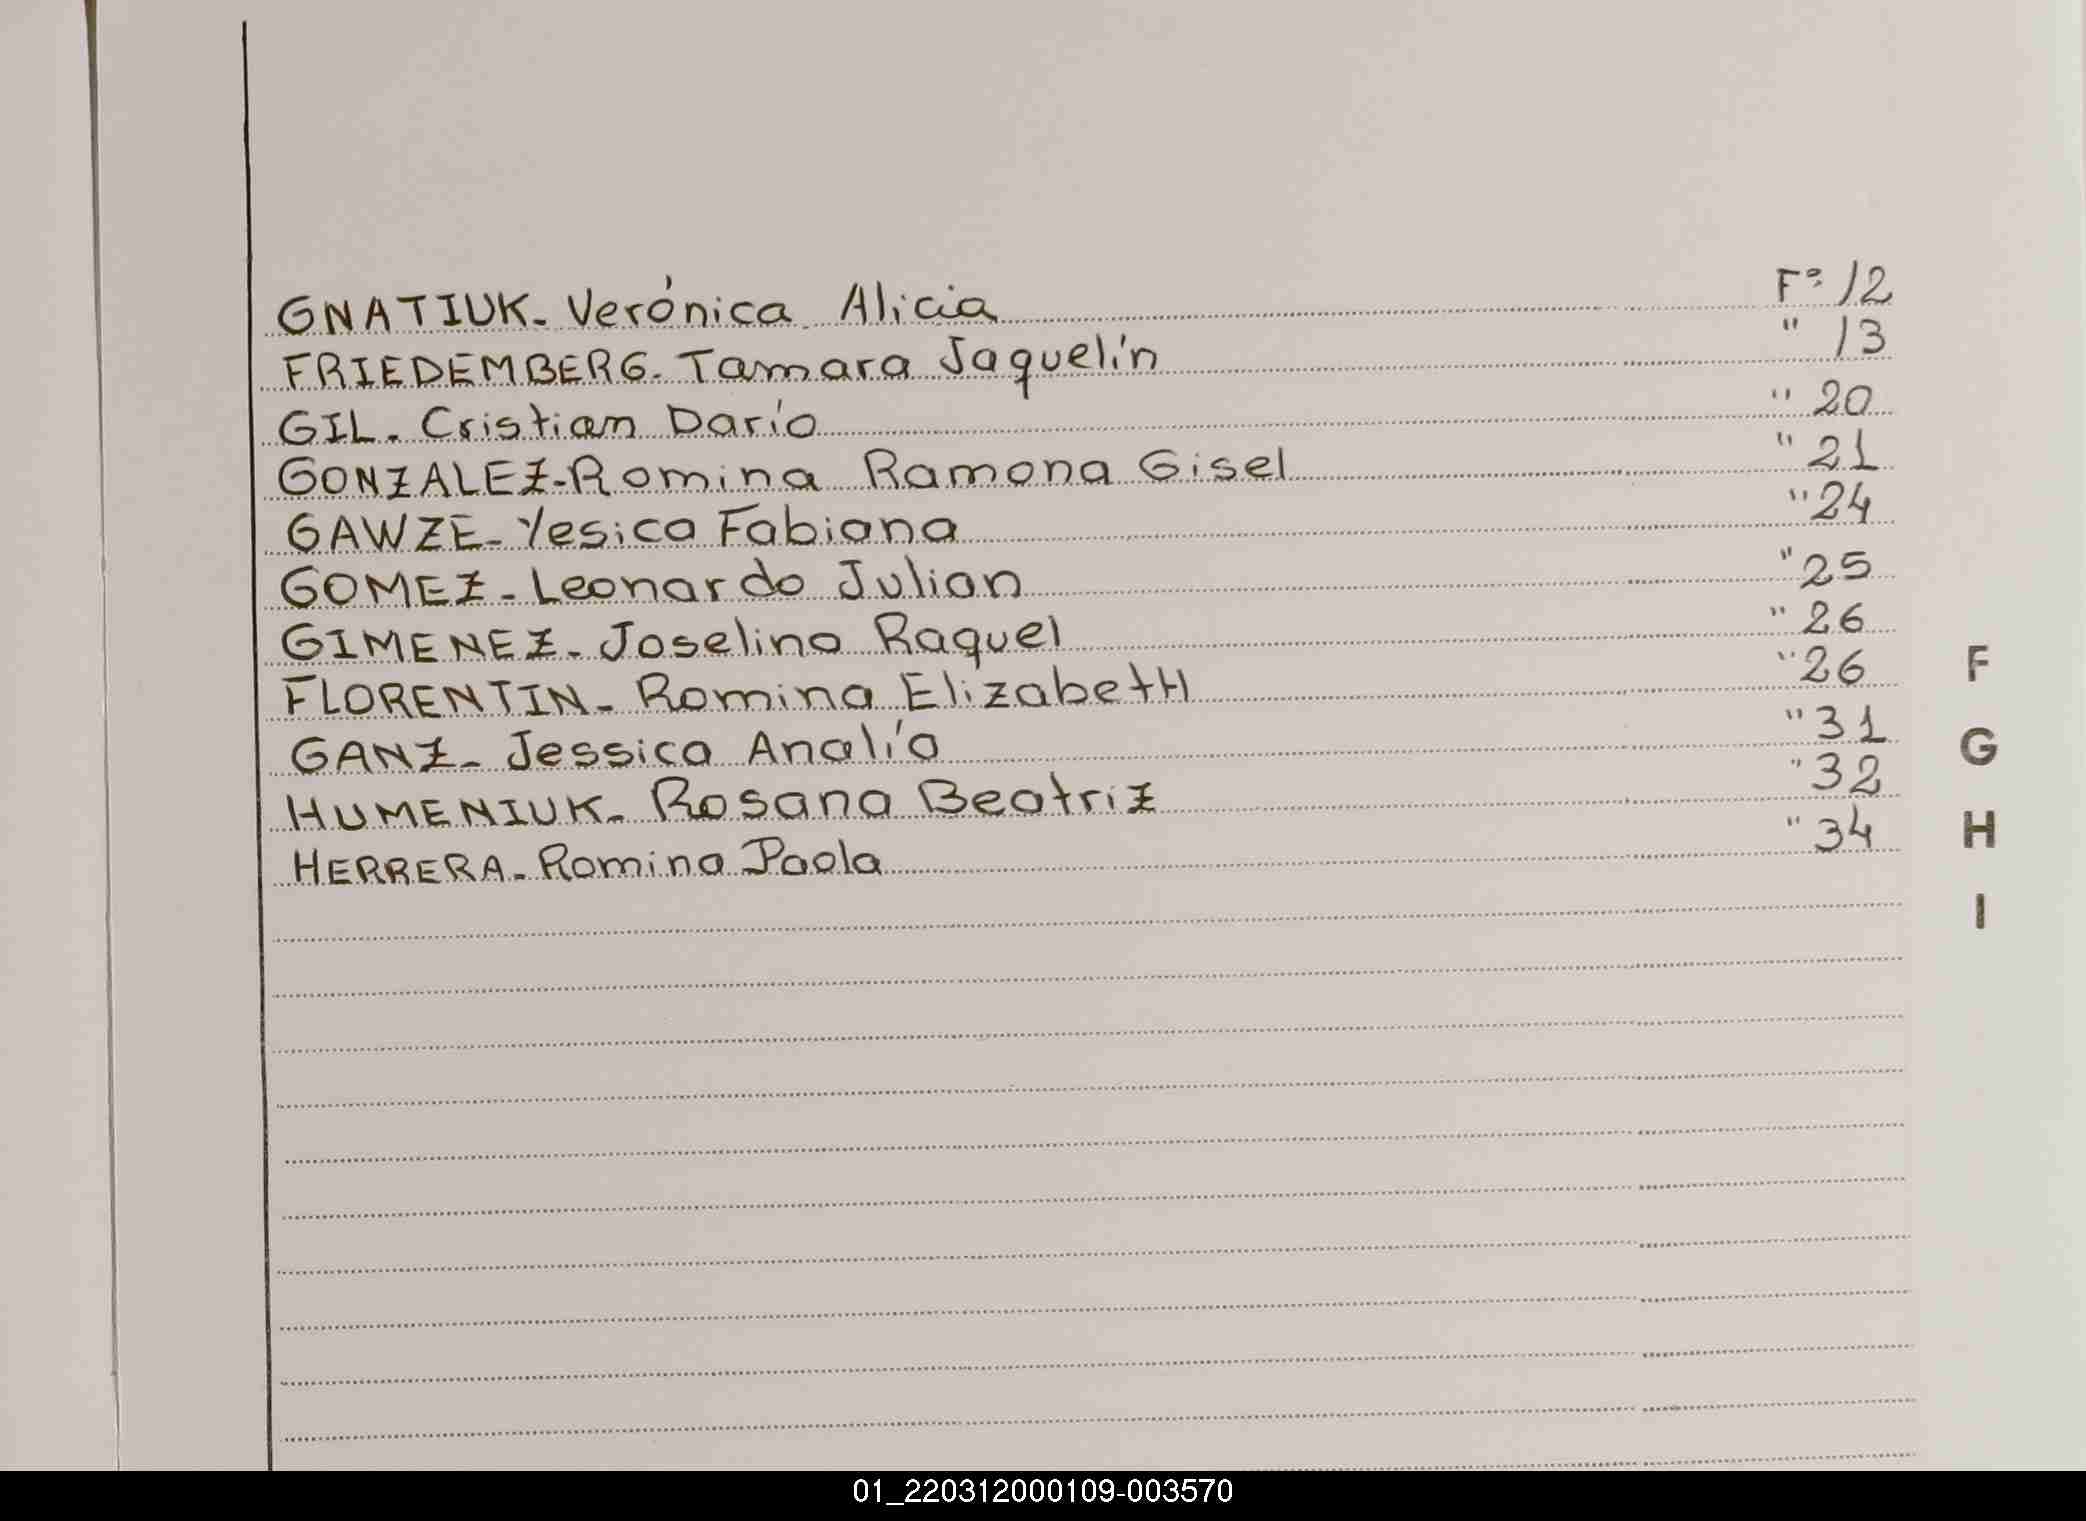 GNATIUK. Verónica Alicia F° 12
FRIEDEMBERG. Tamara Jaquelín " 13
GIL. Cristian Darío " 20
GONZALEZ-Romina Ramona Gisel " 21
GAWZE-Yesica Fabiana " 24
GOMEZ-Leonardo Julian " 25
GIMENEZ. Joselina Raquel " 26
FLORENTIN-Romina ElizabetH " 26
GANZ-Jessica Analía " 31
HUMENIUK. Rosana Beatriz " 32
HERRERA. Romina Paola " 34
F
G
H
I
01_220312000109-003570